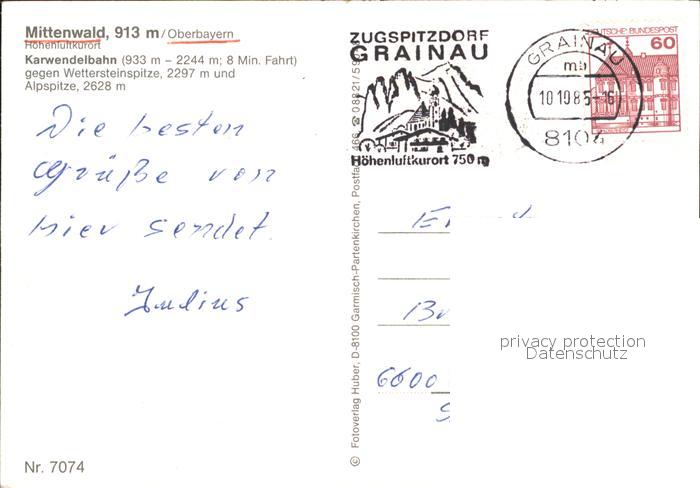 Mittenwald, 913 m/Oberbayern
Höhenluftkurort
Karwendelbahn (933 m – 2244 m; 8 Min. Fahrt)
gegen Wettersteinspitze, 2297 m und
Alpspitze, 2628 m
Die besten
Grüße von
hier sendet.
Julius
Nr. 7074
© Fotoverlag Huber, D-8100 Garmisch-Partenkirchen, Postfa 466 ☎ 08821/59
ZUGSPITZDORF
GRAINAU
Höhenluftkurort 750 m
GRAINAU
mb
10.10.85-16
8104
DEUTSCHE BUNDESPOST
60
6600
privacy protection
Datenschutz